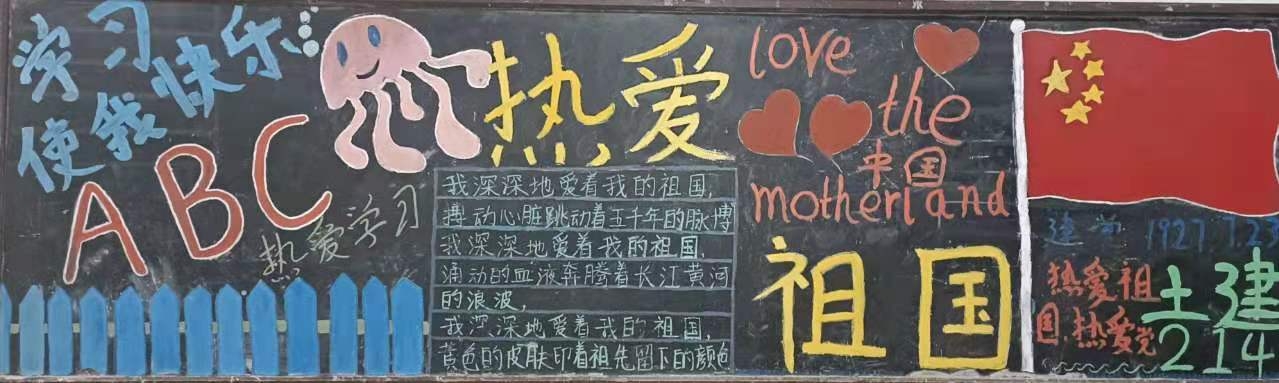 学习
使我快乐
ABC
热爱学习
热爱
我深深地爱着我的祖国,
搏动心脏跳动着五千年的脉搏
我深深地爱着我的祖国,
涌动的血液奔腾着长江黄河
的浪波,
我深深地爱着我的祖国,
黄色的皮肤印着祖先留下的颜色
love
the
中国
motherland
祖国
建党 1927.7.23
热爱祖
国.热爱党
土建
214